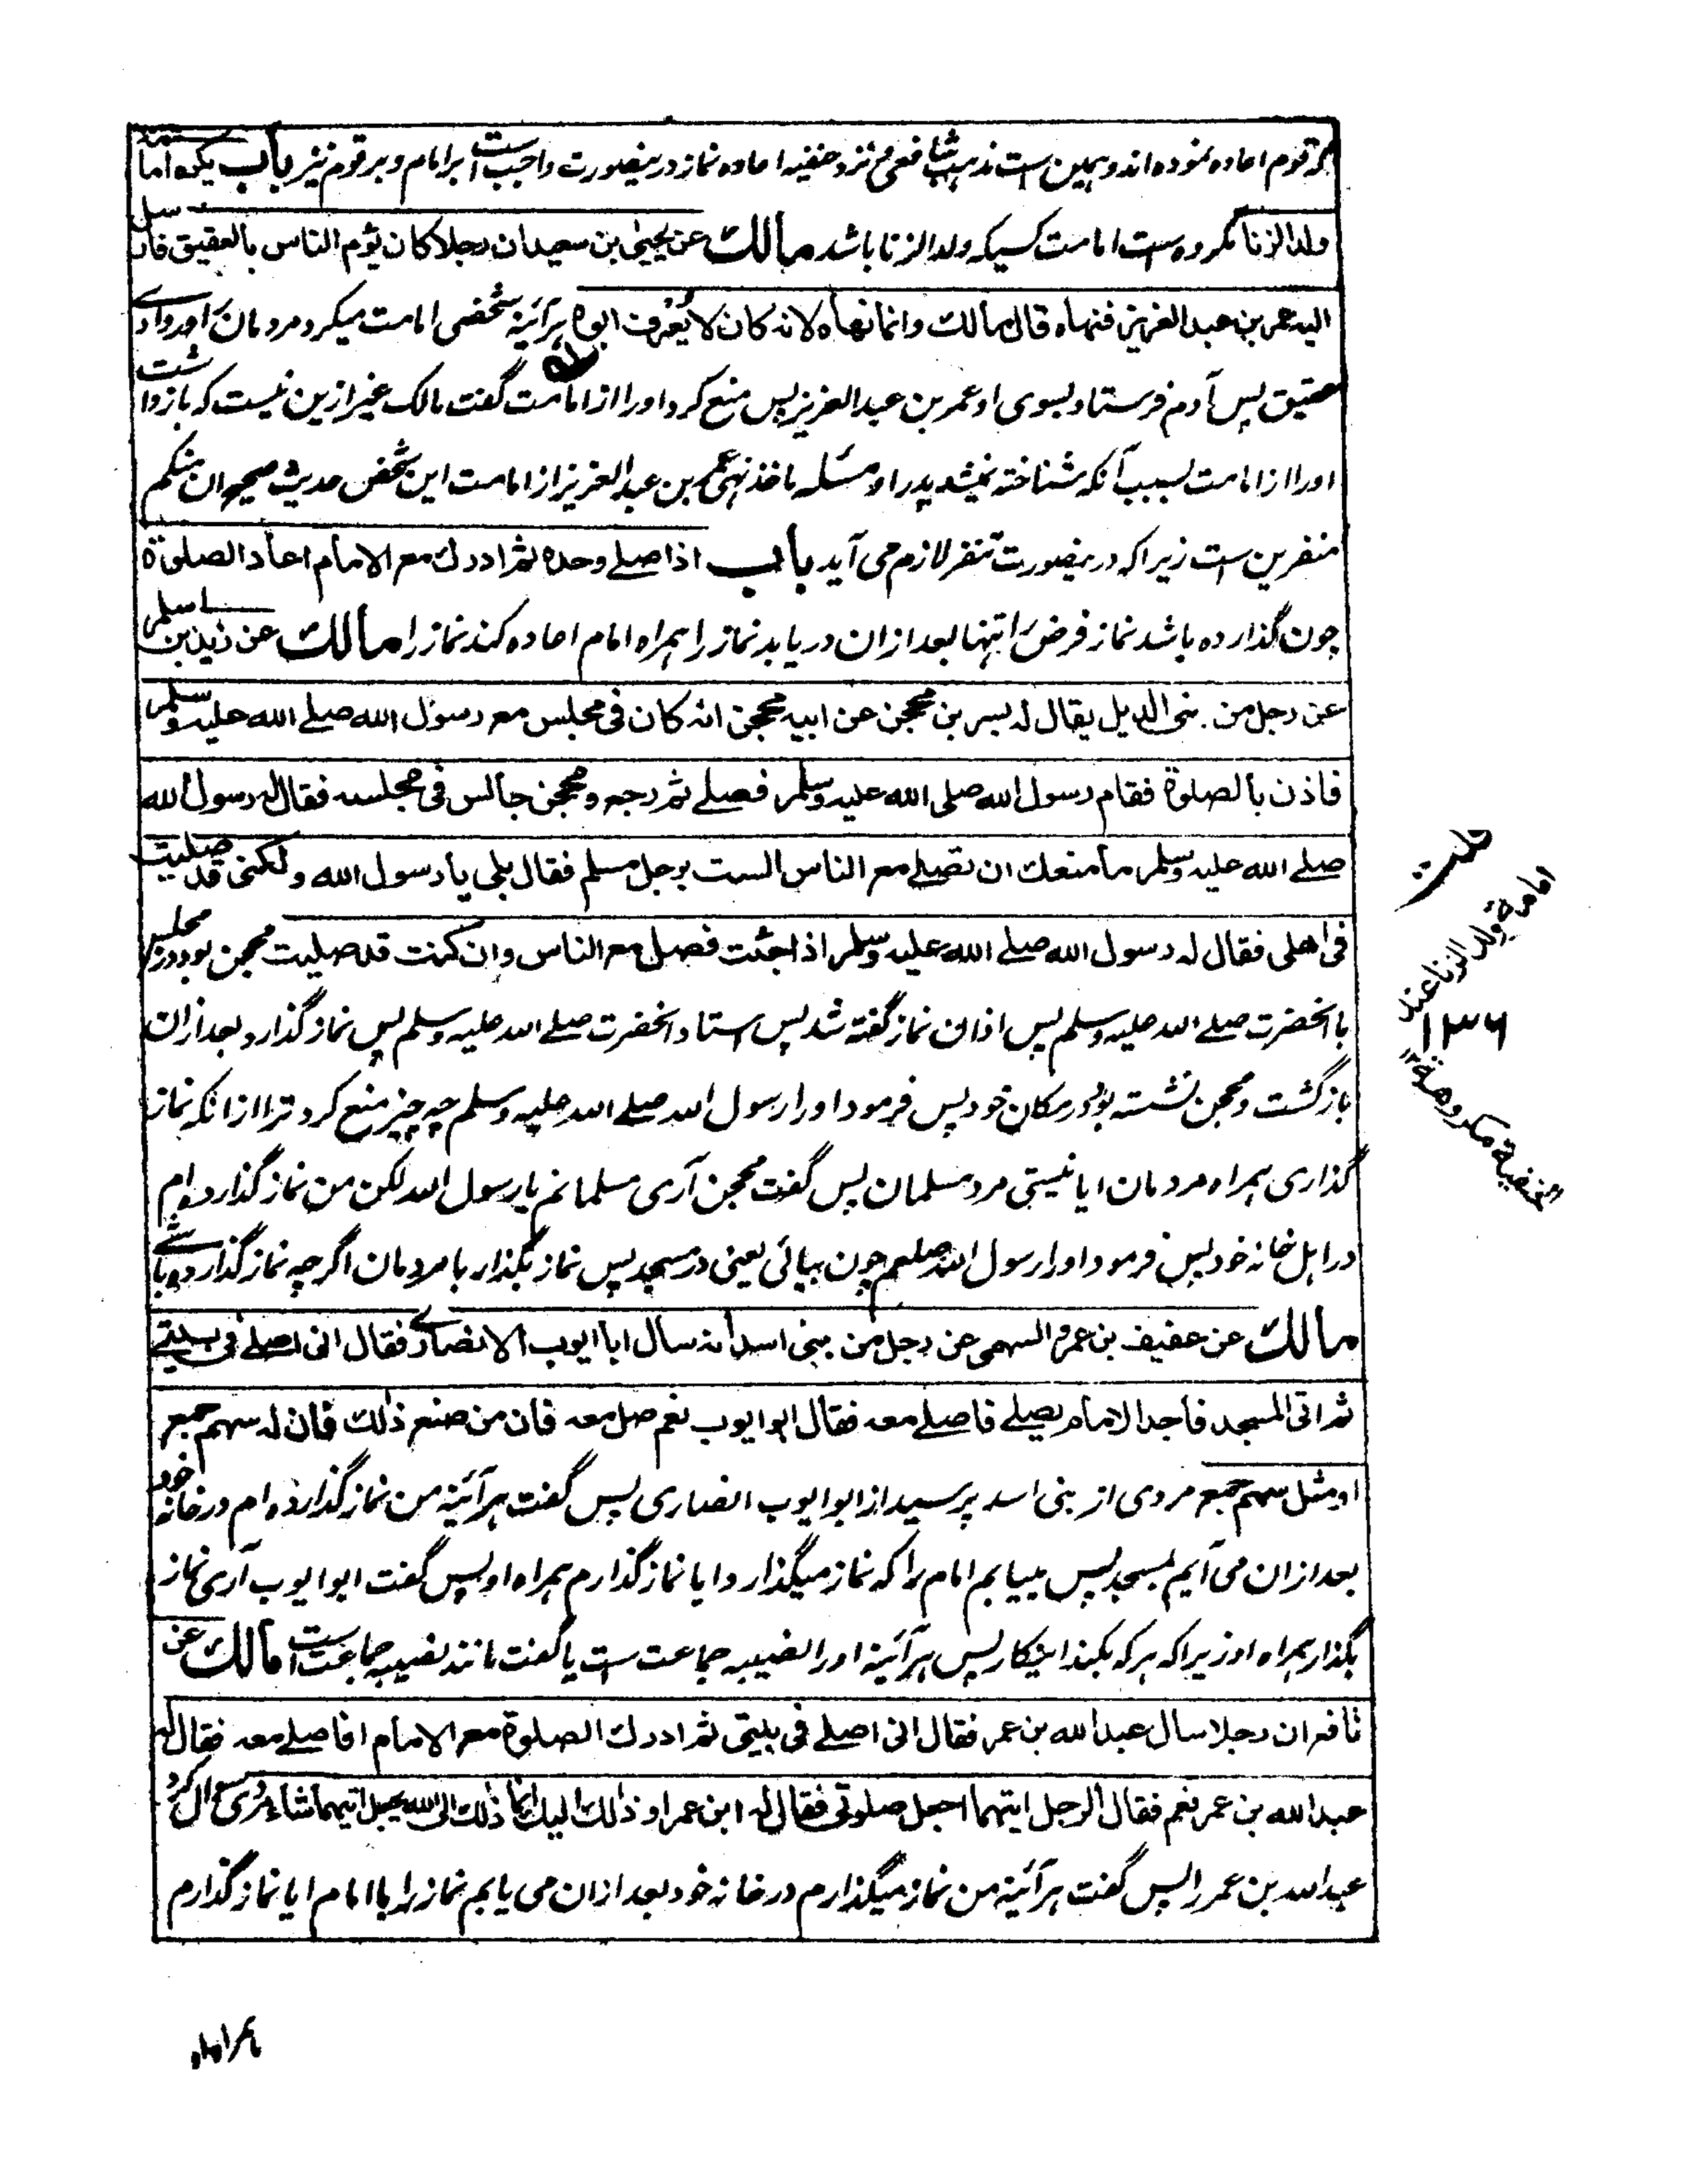 که قوم اعاده نموده اند و همین ست مذهب شافعی رح و نزد حنفیه اعاده نماز درینصورت واجب ست بر امام و بر قوم نیز باب یکره امامة
ولد الزنا مکروه ست امامت کسیکه ولد الزنا باشد مالك عن یحیی بن سعید ان رجلا کان یؤم الناس بالعقیق فارسل
الیه عمر بن عبد العزیز فنهاه قال مالك وانما نهاه لانه کان لا یُعرف ابوه هرآئینه شخصی امامت میکرد مردمان را در وادی
عقیق پس آدم فرستاد بسوی او عمر بن عبد العزیز پس منع کرد او را از امامت گفت مالک غیر ازین نیست که بازداشت
او را از امامت بسبب آنکه شناخته نمیشد پدر او مسئله ماخذ نهی عمر بن عبد العزیز از امامت این شخص حدیث صحیح ان منکم
منفرین ست زیرا که درینصورت تنفر لازم می آید باب اذا صلے وحده ثم ادرك مع الامام اعاد الصلوة
چون گذارده باشد نماز فرض را تنها بعد ازان دریابد نماز را همراه امام اعاده کند نماز را مالك عن زید بن اسلم
عن رجل من بنی الدیل یقال له بسر بن محجن عن ابیه محجن انه کان فی مجلس مع رسول الله صلے الله علیه وسلم
فاذن بالصلوة فقام رسول الله صلی الله علیه وسلم فصلے ثم رجع ومحجن جالس فی مجلسه فقال له رسول الله
صلے الله علیه وسلم ما منعك ان تصلے مع الناس الست برجل مسلم فقال بلی یا رسول الله ولکنی قد صلیت
فی اهلی فقال له رسول الله صلے الله علیه وسلم اذا جئت فصل مع الناس وان کنت قد صلیت محجن بود در مجلس
با آنحضرت صلے الله علیه وسلم پس اذان نماز گفته شد پس استاد آنحضرت صلے الله علیه وسلم پس نماز گذارد بعد ازان
بازگشت و محجن نشسته بود در مکان خود پس فرمود او را رسول الله صلے الله علیه وسلم چه چیز منع کرد ترا از انکه نماز
گذاری همراه مردمان ایا نیستی مرد مسلمان پس گفت محجن آری مسلمانم یا رسول الله لکن من نماز گذارده ام
در اهل خانه خود پس فرمود او را رسول الله صلعم چون بیائی یعنی در مسجد پس نماز بگذار با مردمان اگرچه نماز گذارده باشے
مالك عن عفیف بن عمرو السهمی عن رجل من بنی اسد انه سال ابا ایوب الانصاری فقال انی اصلے فی بیتے
ثم اتی المسجد فاجد الامام یصلے فاصلے معه فقال ابو ایوب نعم صل معه فان من صنع ذلك فان له سهم جمع
او مثل سهم جمع مردی از بنی اسد پرسید از ابو ایوب انصاری پس گفت هرآئینه من نماز گذارده ام در خانه خود
بعد ازان می آیم بمسجد پس مییابم امام را که نماز میگذارد ایا نماز گذارم همراه او پس گفت ابو ایوب آری نماز
بگذار همراه او زیرا که هر که بکند اینکار پس هرآئینه او را نصیب جماعت ست یا گفت مانند نصیب جماعت ست مالك عن
نافع ان رجلا سال عبد الله بن عمر فقال انی اصلے فی بیتی ثم ادرك الصلوة مع الامام افاصلے معه فقال له
عبد الله بن عمر نعم فقال الرجل ایتهما اجعل صلوتی فقال له ابن عمر او ذلك الیك انما ذلك الی الله یجعل ایتهما شاء مردی سوال کرد
عبد الله بن عمر را پس گفت هرآئینه من نماز میگذارم در خانه خود بعد ازان می یابم نماز را با امام ایا نماز گذارم
قلت
امامة ولد الزنا عند
۱۳۶
الحنفیة مکروهة ۱۲
همراه او